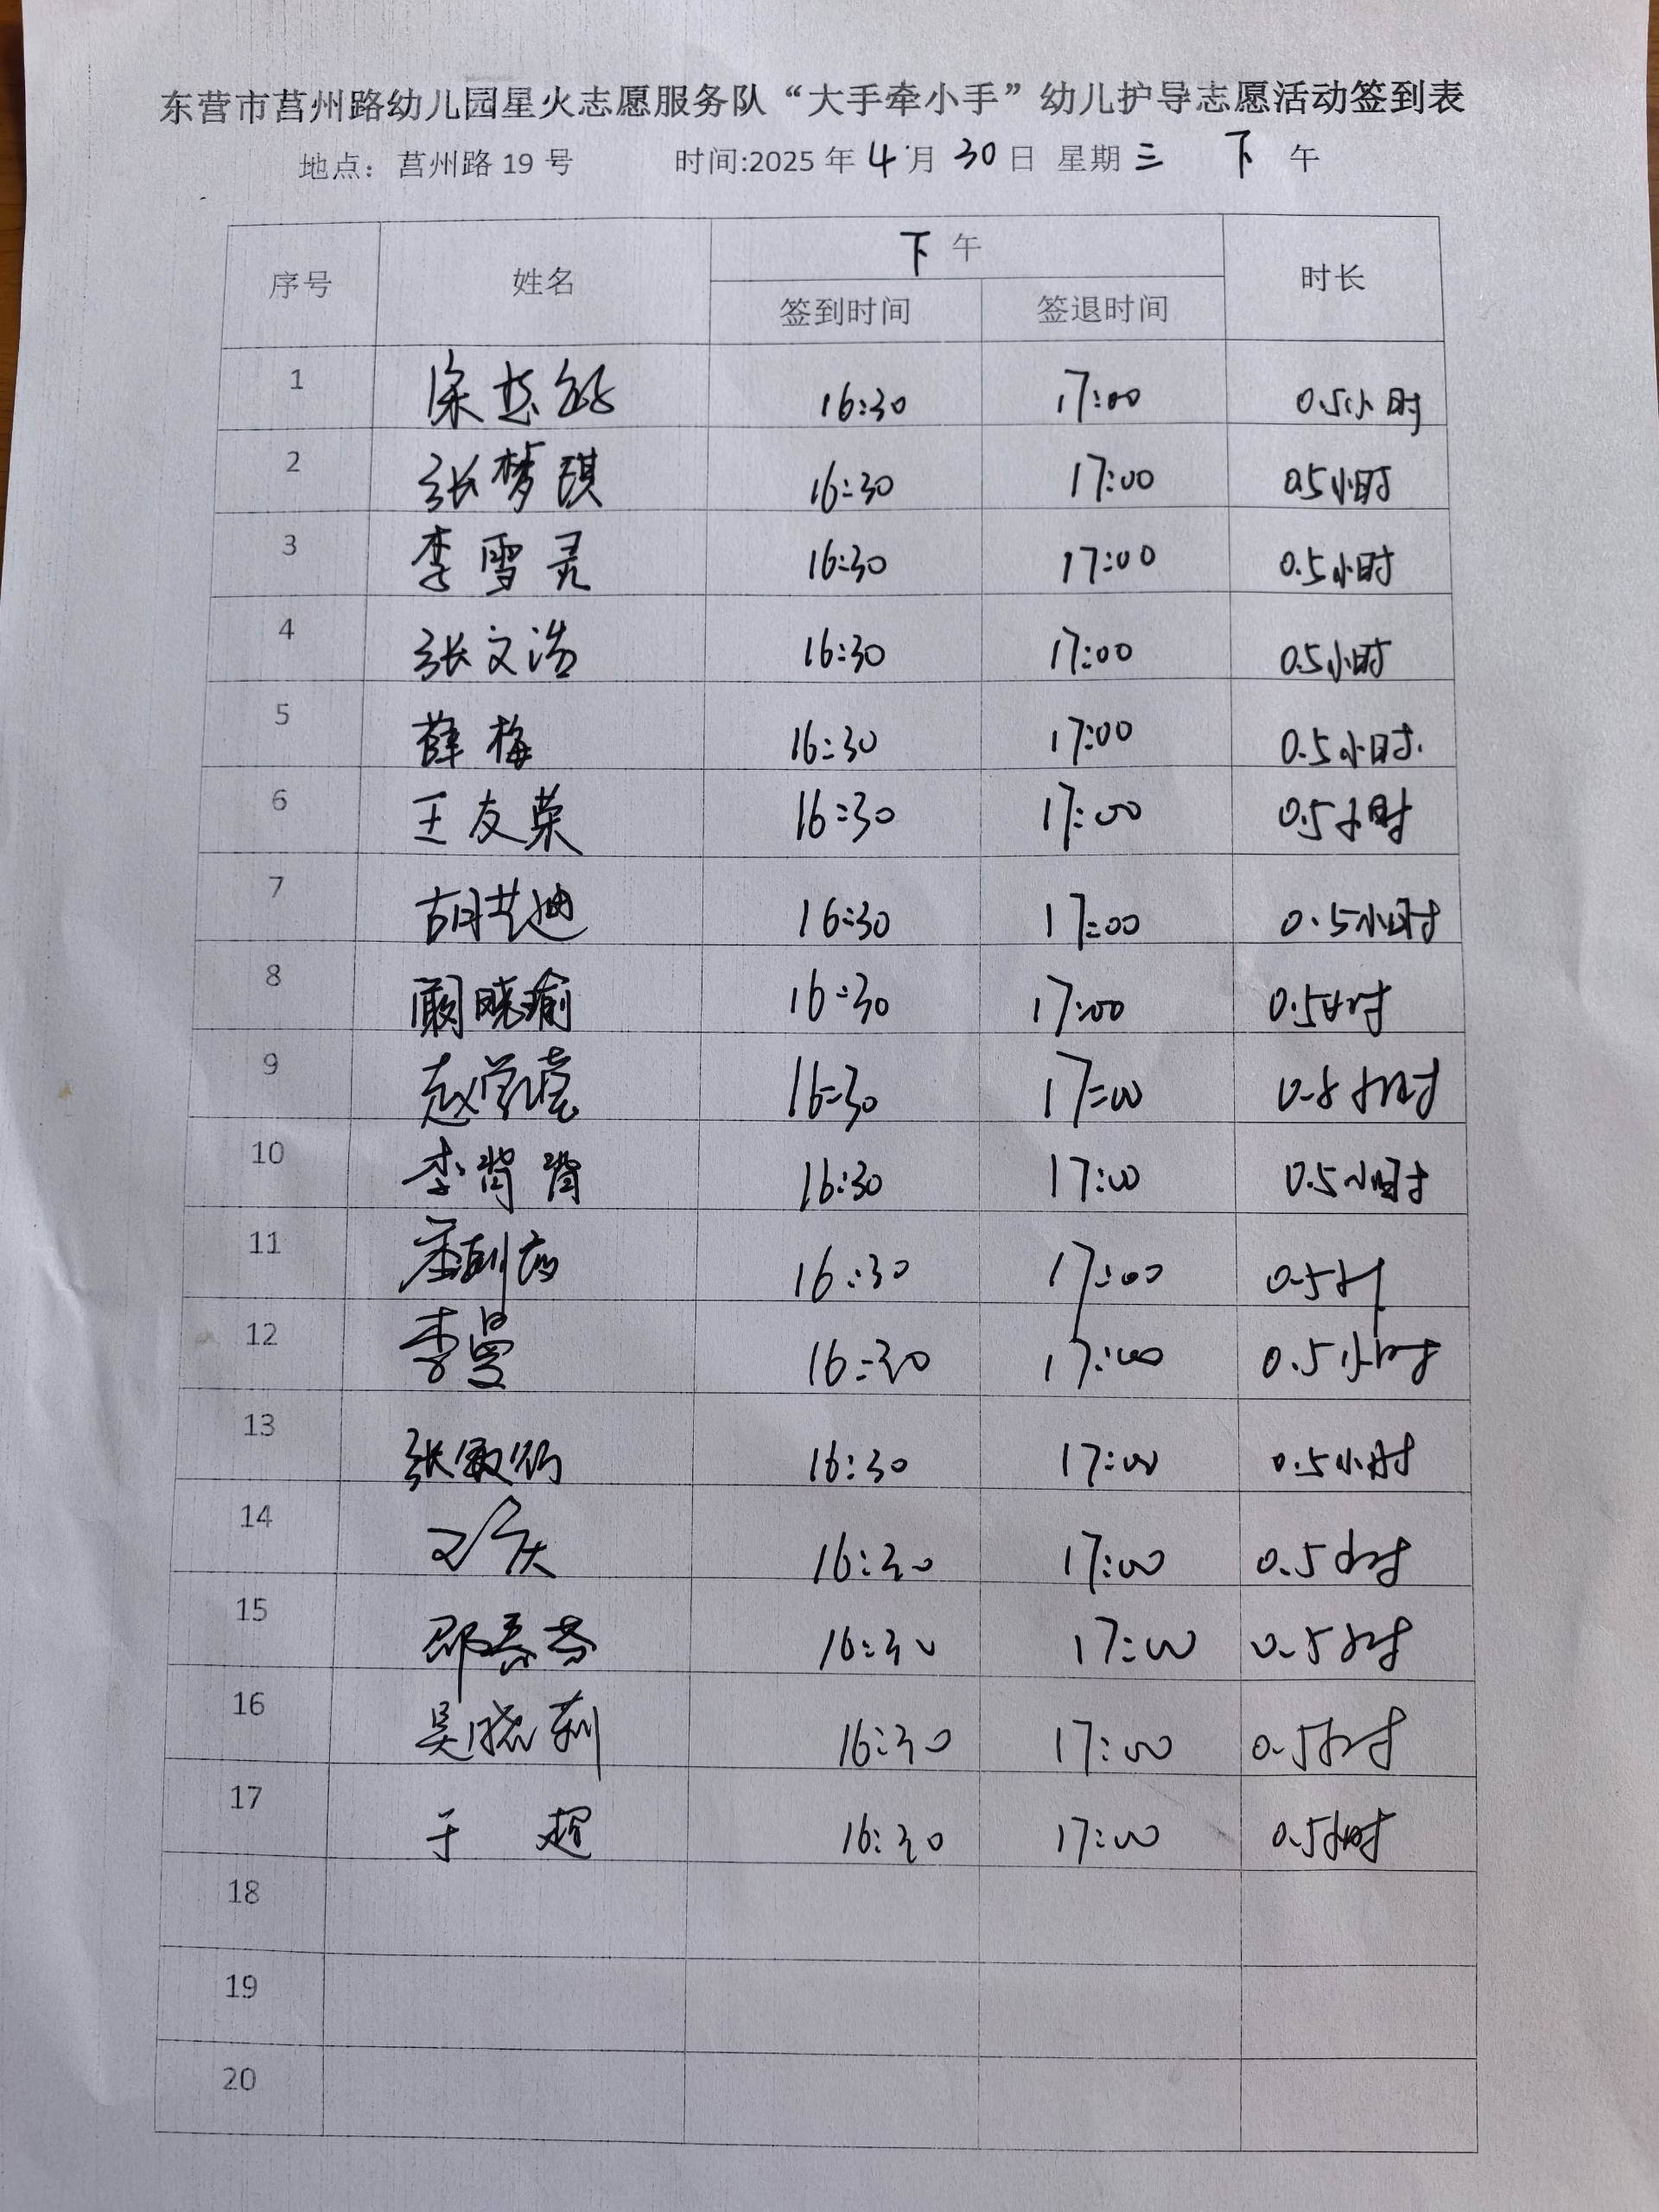 东营市莒州路幼儿园星火志愿服务队“大手牵小手”幼儿护导志愿活动签到表
地点：莒州路 19 号 时间:2025 年 4 月 30 日 星期 三 下 午
序号 姓名 下 午 时长
签到时间 签退时间
1 徐 16:30 17:00 0.5小时
2 张梦琪 16:30 17:00 0.5小时
3 李雪灵 16:30 17:00 0.5小时
4 张文浩 16:30 17:00 0.5小时
5 薛梅 16:30 17:00 0.5小时.
6 王友荣 16:30 17:00 0.5小时
7 胡艺迪 16:30 17:00 0.5小时
8 阚晓瑜 16:30 17:00 0.5小时
9 赵 16:30 17:00 0.5小时
10 李 16:30 17:00 0.5小时
11 16:30 17:00 0.5
12 李曼 16:30 17:00 0.5小时
13 张敏 16:30 17:00 0.5小时
14 16:30 17:00 0.5小时
15 邵 16:30 17:00 0.5小时
16 吴晓莉 16:30 17:00 0.5小时
17 于 超 16:30 17:00 0.5小时
18
19
20